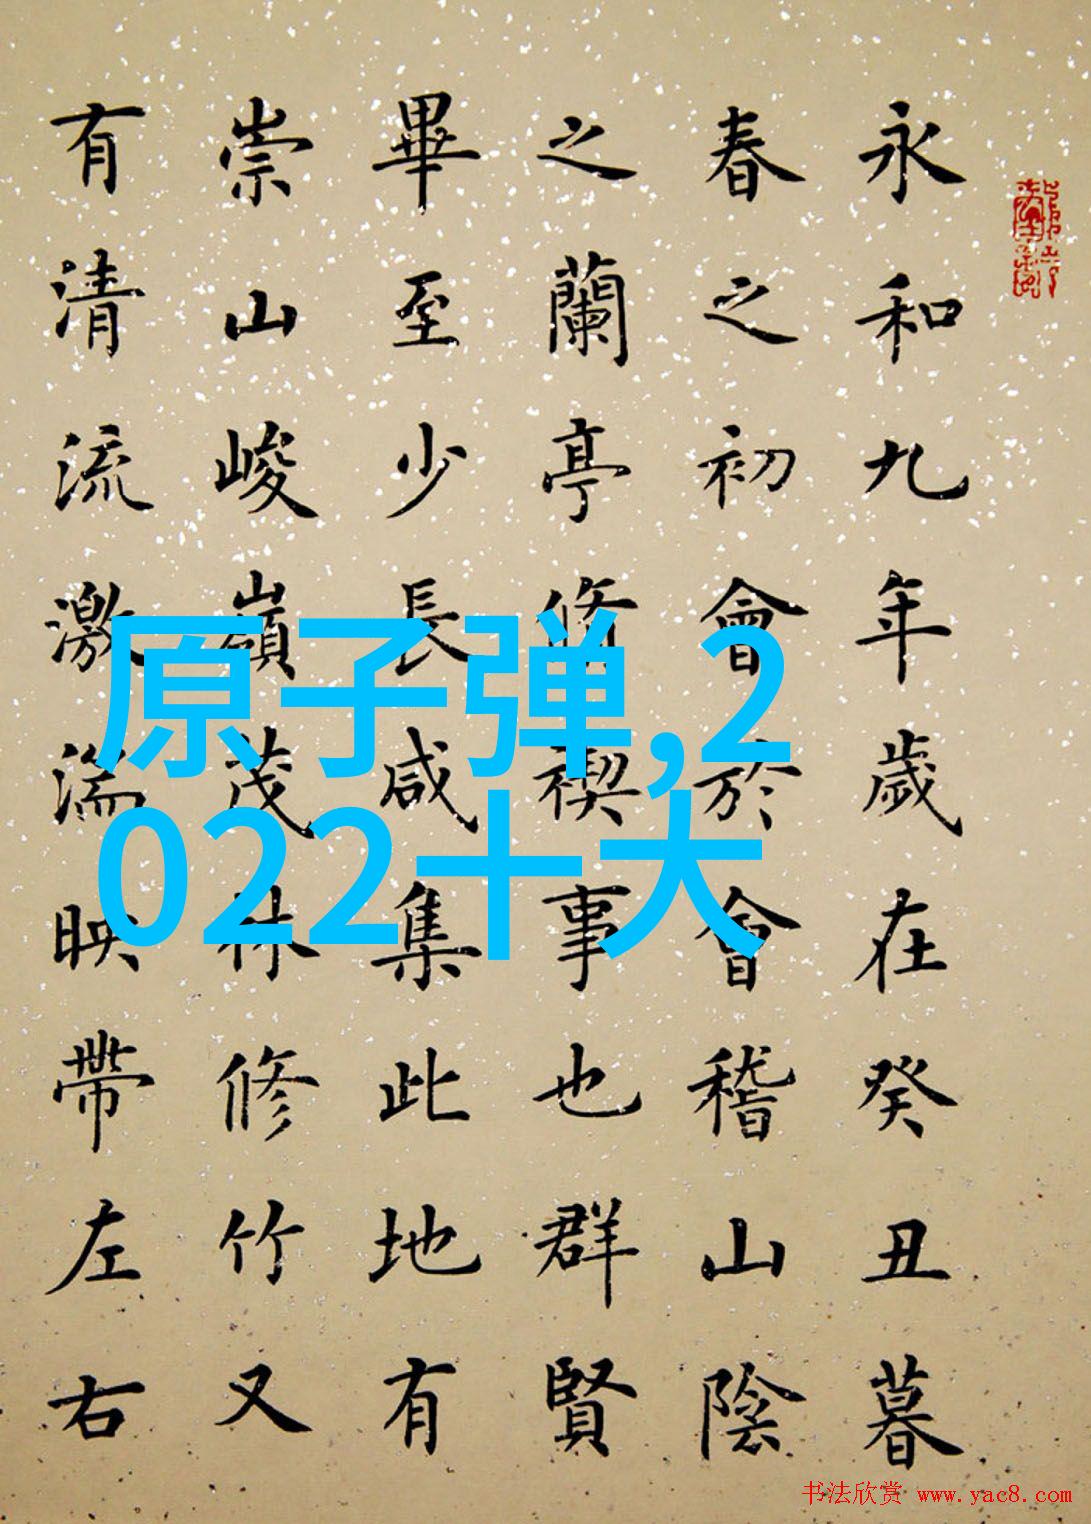 永和九年歲在癸丑暮
春之初會於會稽山陰
之蘭亭脩禊事也群賢
畢至少長咸集此地有
崇山峻嶺茂林修竹又
有清流激湍映帶左右
原子弹,2
022十大
书法欣赏 www.yac8.com